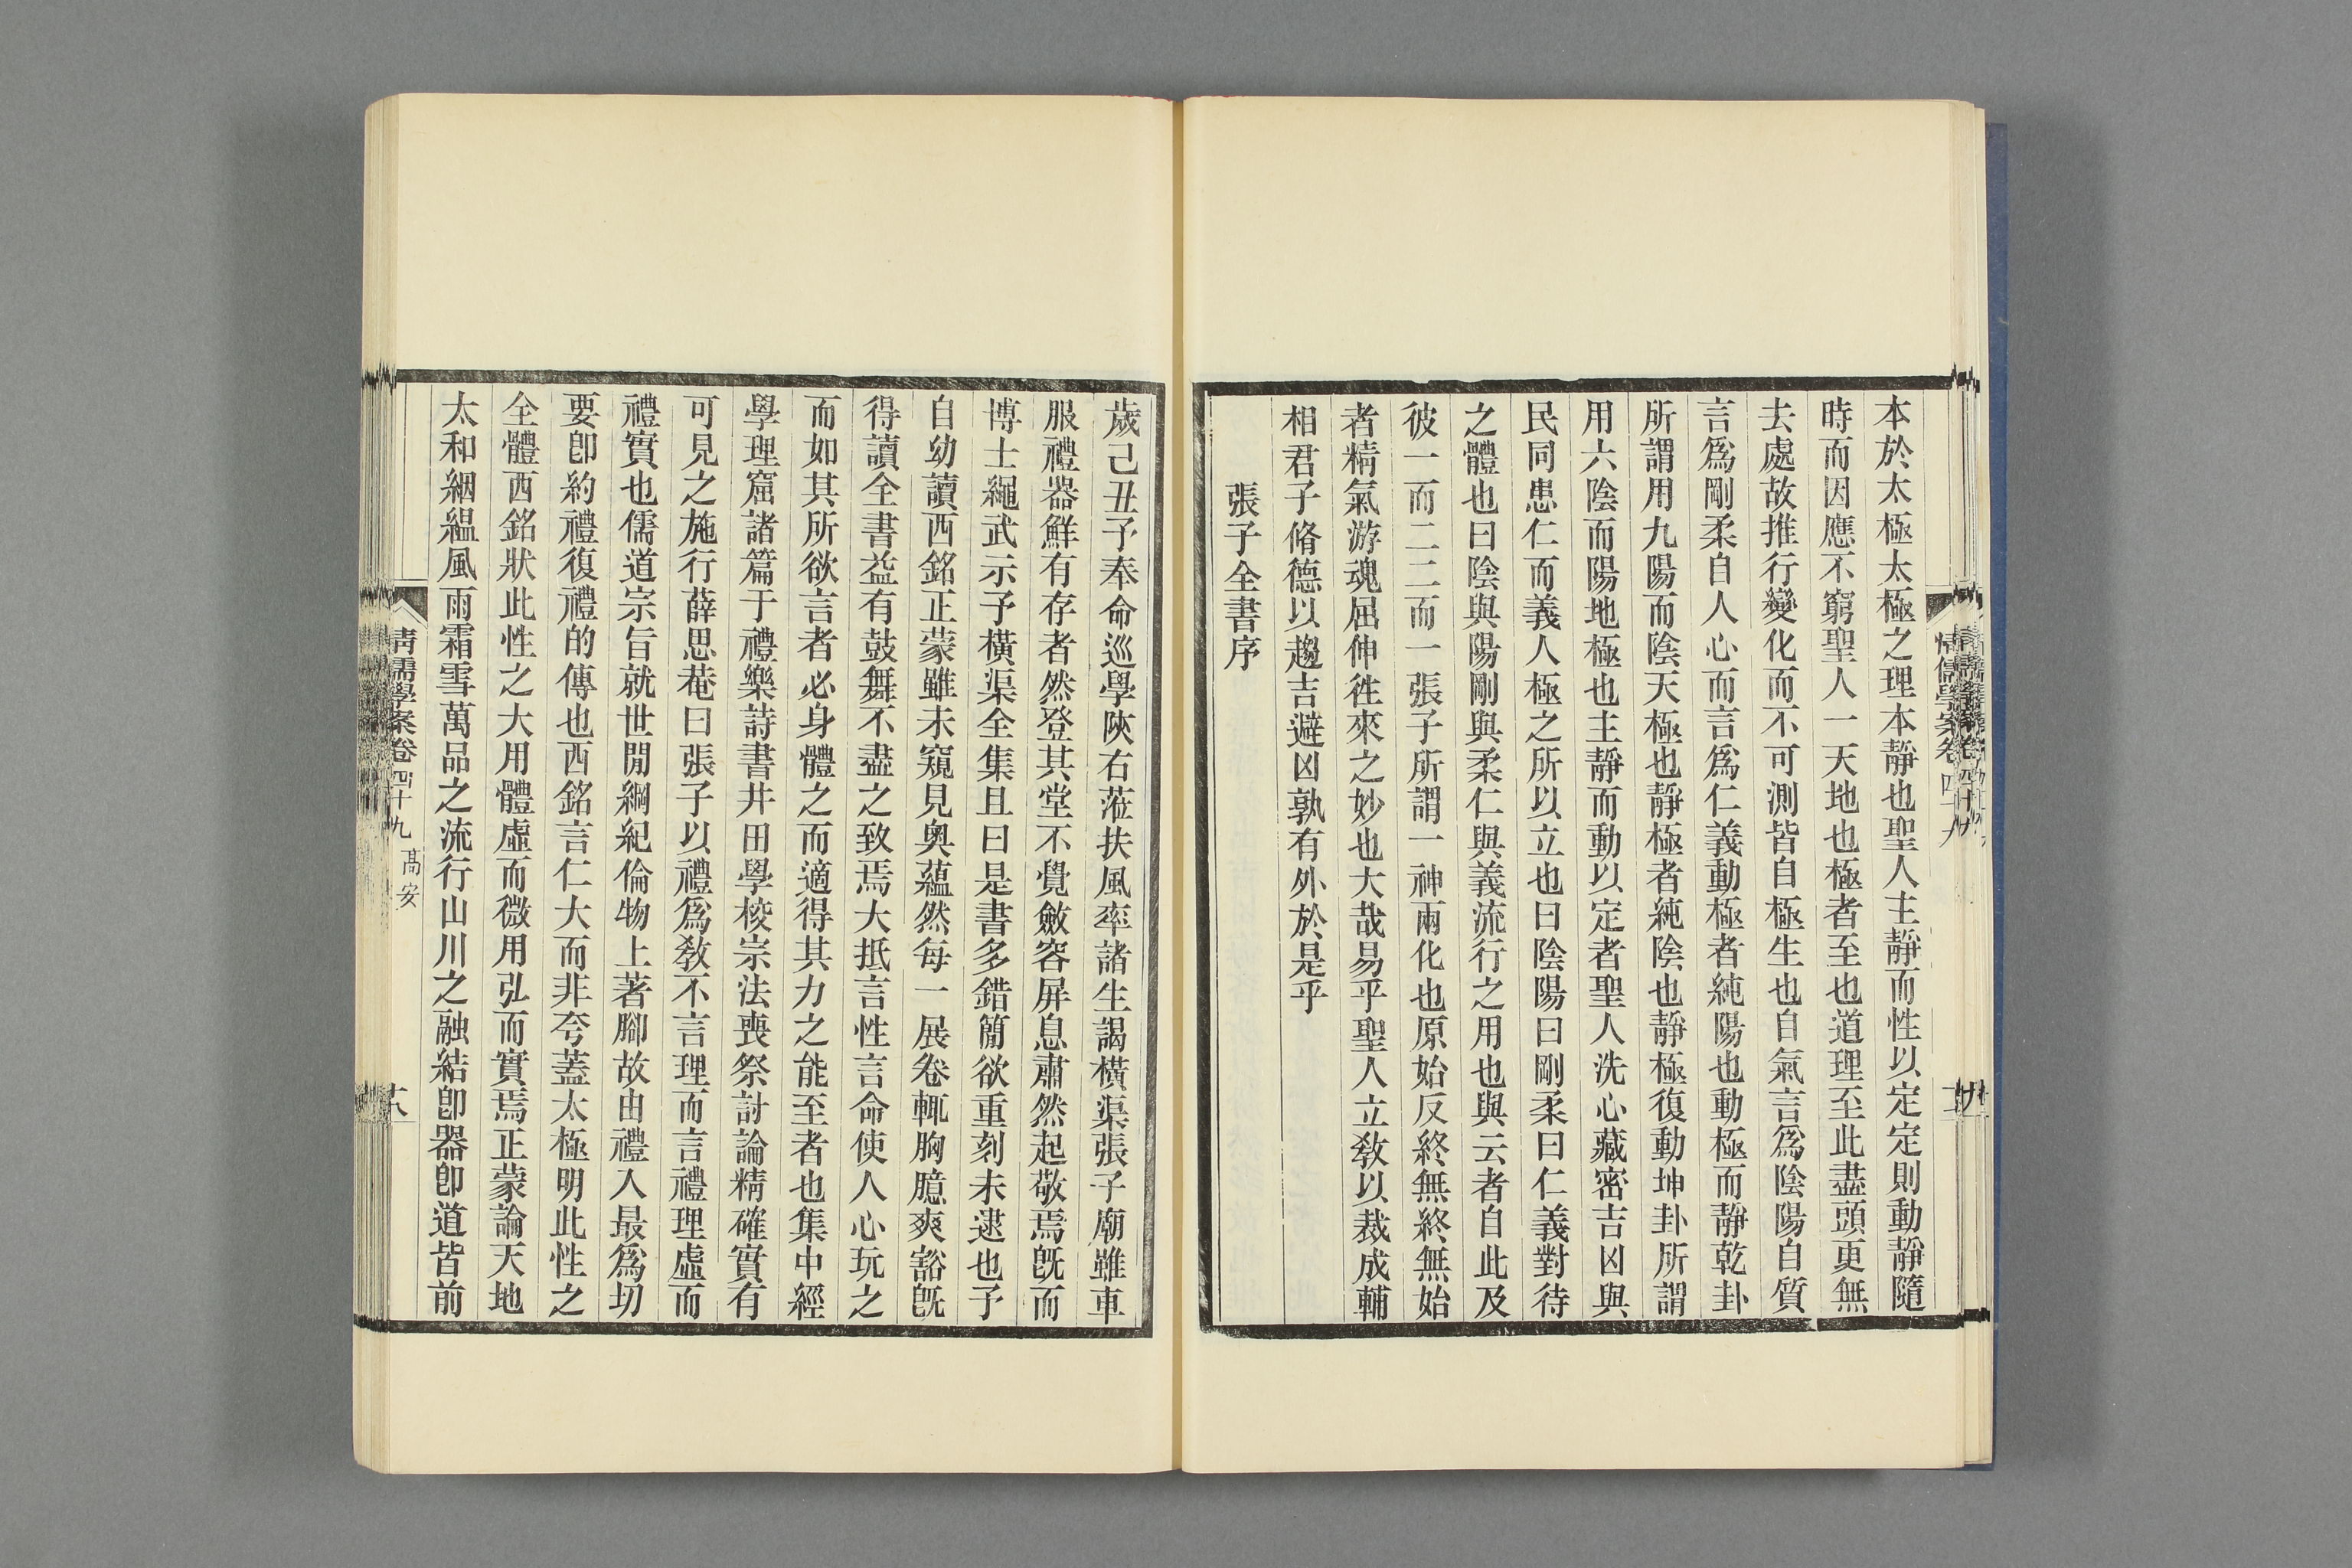 本於太極太極之理本靜也聖人主靜而性以定定則動靜隨
時而因應不窮聖人一天地也極者至也道理至此盡頭更無
去處故推行變化而不可測皆自極生也自氣言爲陰陽自質
言爲剛柔自人心而言爲仁義動極者純陽也動極而靜乾卦
所謂用九陽而陰天極也靜極者純陰也靜極復動坤卦所謂
用六陰而陽地極也主靜而動以定者聖人洗心藏密吉凶與
民同患仁而義人極之所以立也曰陰陽曰剛柔曰仁義對待
之體也曰陰與陽剛與柔仁與義流行之用也與云者自此及
彼一而二二而一張子所謂一神兩化也原始反終無終無始
者精氣游魂屈伸徃來之妙也大哉易乎聖人立教以裁成輔
相君子脩德以趨吉避凶孰有外於是乎
張子全書序
歲己丑予奉命巡學陝右蒞扶風率諸生謁橫渠張子廟雖車
服禮器鮮有存者然登其堂不覺斂容屏息肅然起敬焉旣而
博士繩武示予橫渠全集且曰是書多錯簡欲重刻未逮也予
自幼讀西銘正蒙雖未窺見奧蘊然每一展卷輒胸臆爽豁旣
得讀全書益有鼓舞不盡之致焉大抵言性言命使人心玩之
而如其所欲言者必身體之而適得其力之能至者也集中經
學理窟諸篇于禮樂詩書井田學校宗法喪祭討論精確實有
可見之施行薛思菴曰張子以禮爲教不言理而言禮理虛而
禮實也儒道宗旨就世閒綱紀倫物上著腳故由禮入最爲切
要卽約禮復禮的傳也西銘言仁大而非夸蓋太極明此性之
全體西銘狀此性之大用體虛而微用弘而實焉正蒙論天地
太和絪縕風雨霜雪萬品之流行山川之融結卽器卽道皆前
清儒學案卷四十九
高安
十八